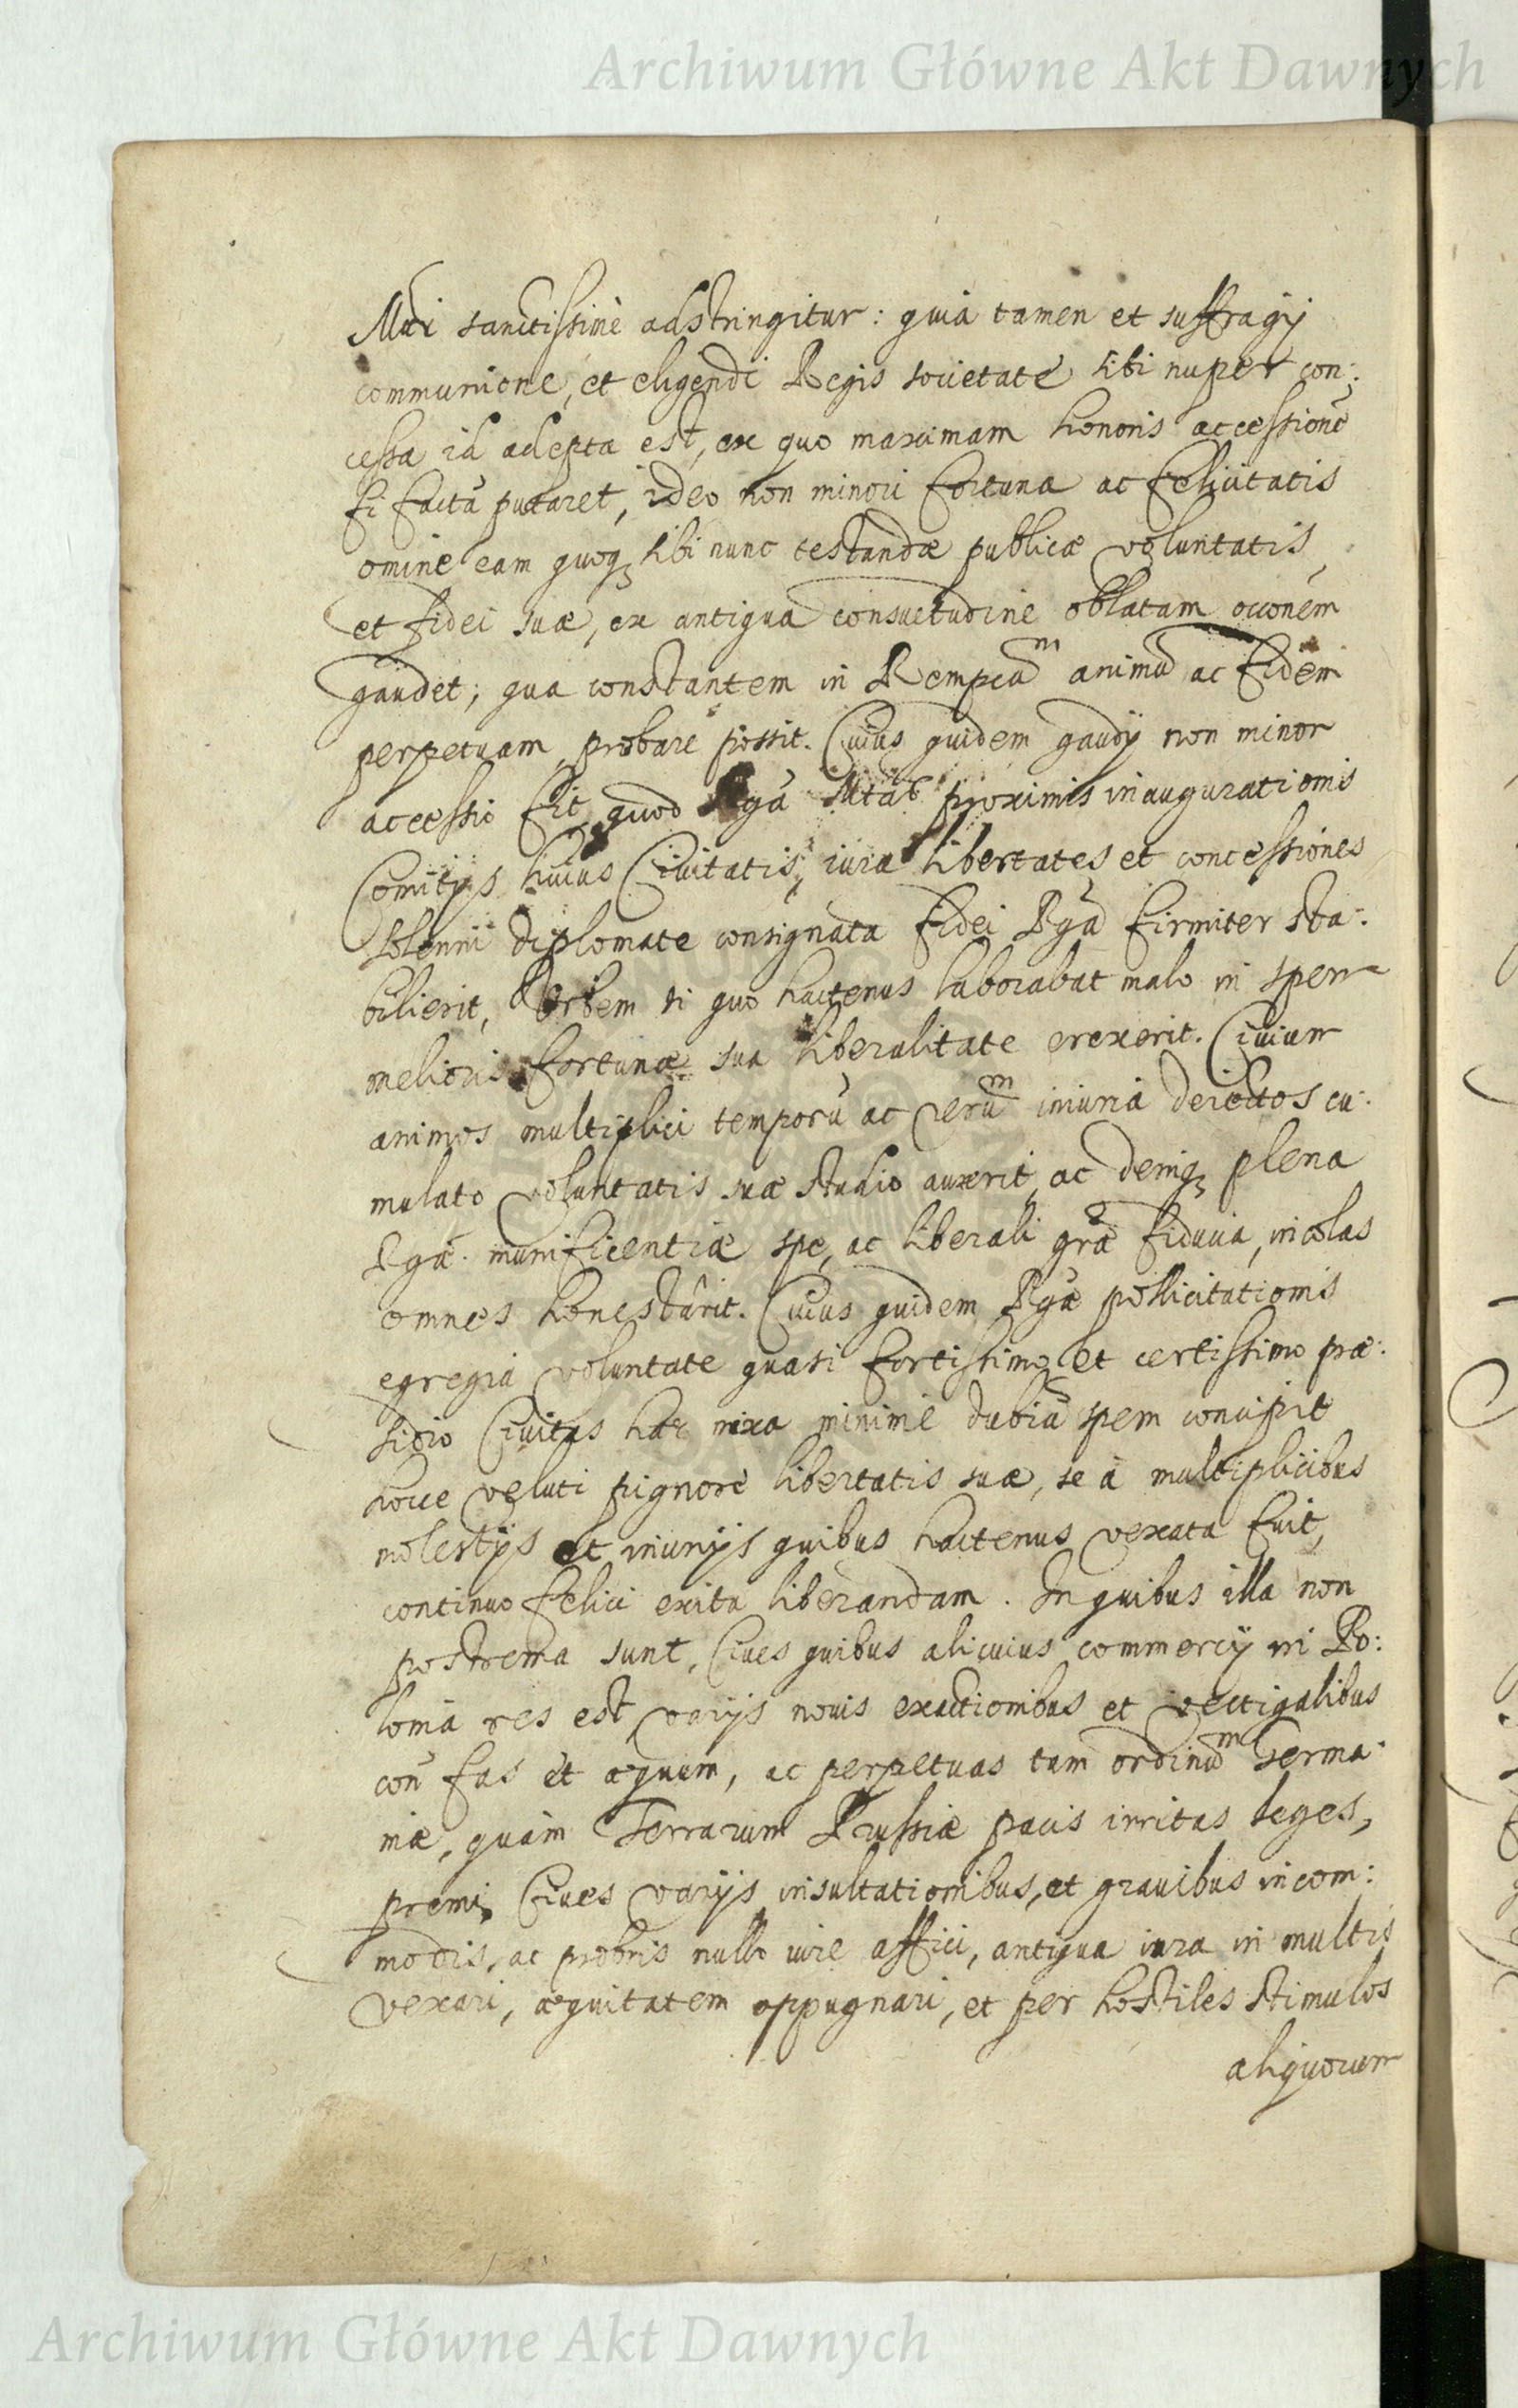 Archiwum Główne Akt Dawnych
Mti sanctissimè adstringitur: quia tamen et suffragij
communione, et eligendi Regis societate sibi nuper con:
cessa id adepta est, ex quo maximam honoris accessionē
si factā putaret, ideo non minori fortuna ac felicitatis
omine eam quoqз sibi nunc testandæ publicæ voluntatis,
et fidei suæ, ex antiqua consuetudine oblatam occōnem
gaudet; qua constantem in Rempcam animū ac fidem
perpetuam probare possit. Cuius quidem gaudij non minor
accessio fit, quod Rgā Mtās proximis inaugurationis
Comitijs huius Ciuitatis, iura libertates et concessiones
solenni diplomate consignata fidei Rgā firmiter sta:
bilierit, Vrbem si quo hactenus laborabat malo in spem
melioris fortunæ sua liberalitate erexerit. Ciuium
animos multiplici temporū ac rerum iniuria deiectos cu:
mulato voluntatis suæ studio auxerit, ac deniqз plena
Rgæ munificentiæ spe, ac liberali græ fiducia, incolas
omnes honestârit. Cuius quidem Rgæ pollicitationis
egregia voluntate quasi fortissimo et certissimo præ:
sidio Ciuitas hæc nixa minimè dubiā spem concipit
hocce veluti pignore libertatis suæ, se à multiplicibus
molestijs et iniurijs quibus hactenus vexata fuit,
continuo felici exitu liberandam. In quibus illa non
postrema sunt, Ciues quibus alicuius commercij in Po:
lonia res est, varijs nouis exactionibus et vectigalibus
con fas et æquum, ac perpetuas tam ordinum Germa:
niæ, quàm Terrarum Prussiæ pacis irritas leges,
premi, Ciues varijs insultationibus, et grauibus incom:
modis, ac probris nullo iure affici, antiqua iura in multis
vexari, æquitatem oppugnari, et per hostiles stimulos
aliquorum
Archiwum Główne Akt Dawnych